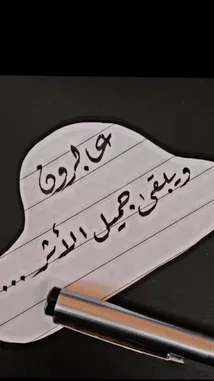 عابرون
ويبقى جميل الأثر...